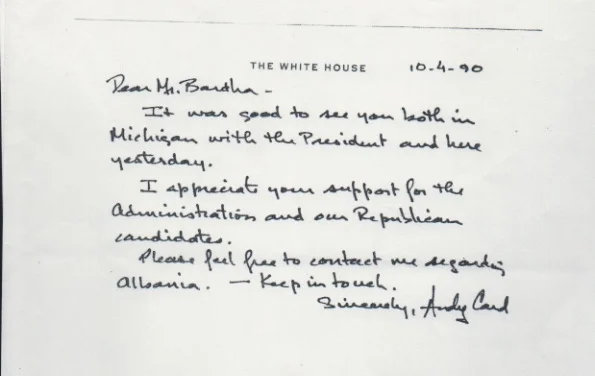 THE WHITE HOUSE 10-4-90
Dear Mr. Bardha -
It was good to see you both in
Michigan with the President and here
yesterday.
I appreciate your support for the
Administration and our Republican
candidates.
Please feel free to contact me regarding
Albania. — Keep in touch.
Sincerely, Andy Card